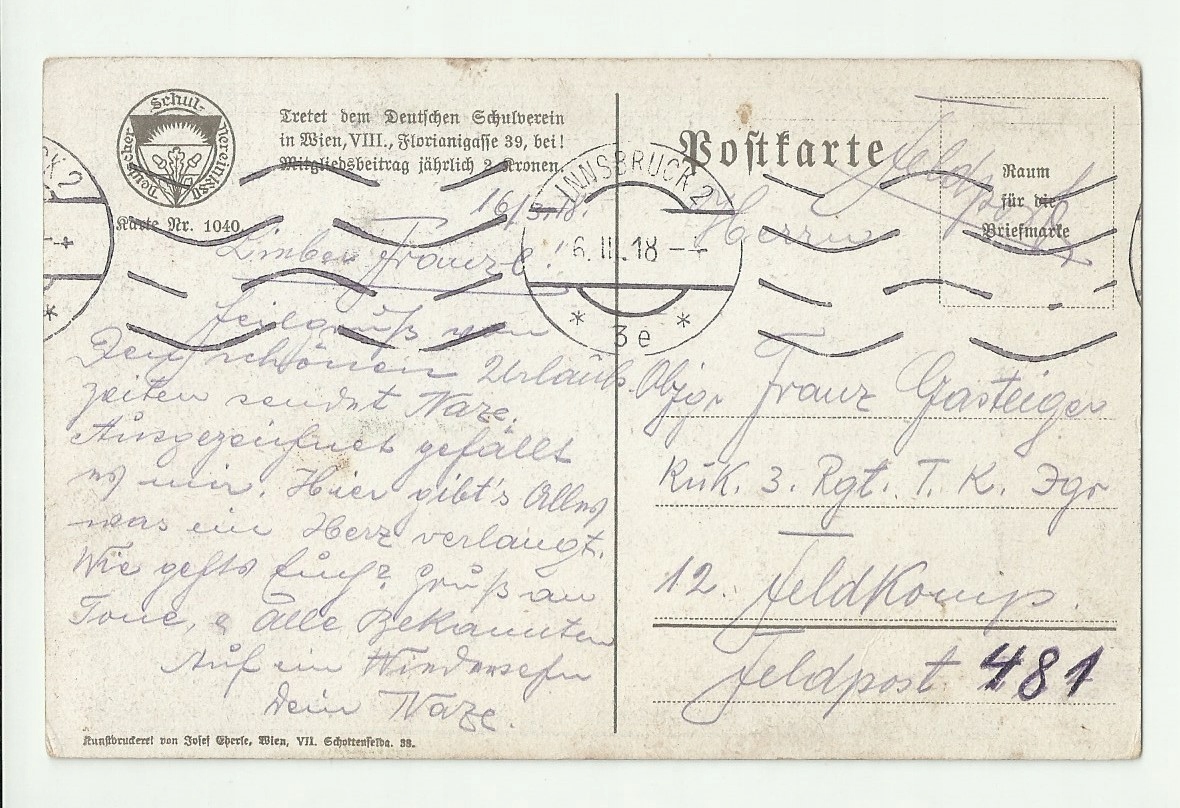 Deutscher Schul-Verein 1880
Tretet dem Deutschen Schulverein
in Wien, VIII., Florianigasse 39, bei!
Mitgliedsbeitrag jährlich 2 Kronen.
Karte Nr. 1040.
16/3.18.
Lieber Franzl!
Heilgruß von
Den schönen Urlaubs
zeiten sendet Naze.
Ausgezeichnet gefällt
es mir. Hier gibt's Alles
was ein Herz verlangt.
Wie gehts Euch? Gruß an
Tone, alle Bekannten
Auf ein Wiedersehn
Dein Naze.
Kunstdruckerei von Josef Eberle, Wien, VII. Schottenfeldg. 38.
INNSBRUCK 2
6.III.18
* 3e *
CK 2
Postkarte
Feldpost
Raum
für die
Briefmarke
Herrn
Objgr Franz Gasteiger
KuK. 3. Rgt. T. K. Jgr
12. Feldkomp.
Feldpost 481